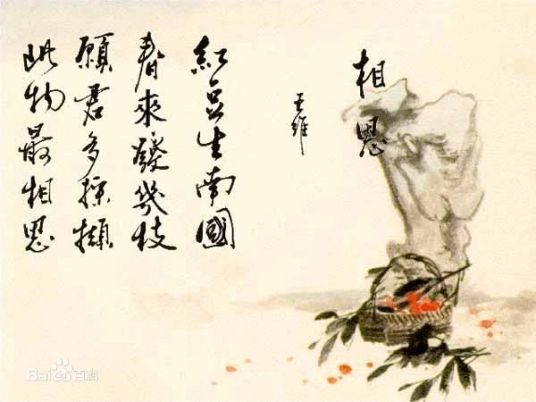 相思
王維
紅豆生南國
春來發幾枝
願君多採擷
此物最相思
Baidu百科